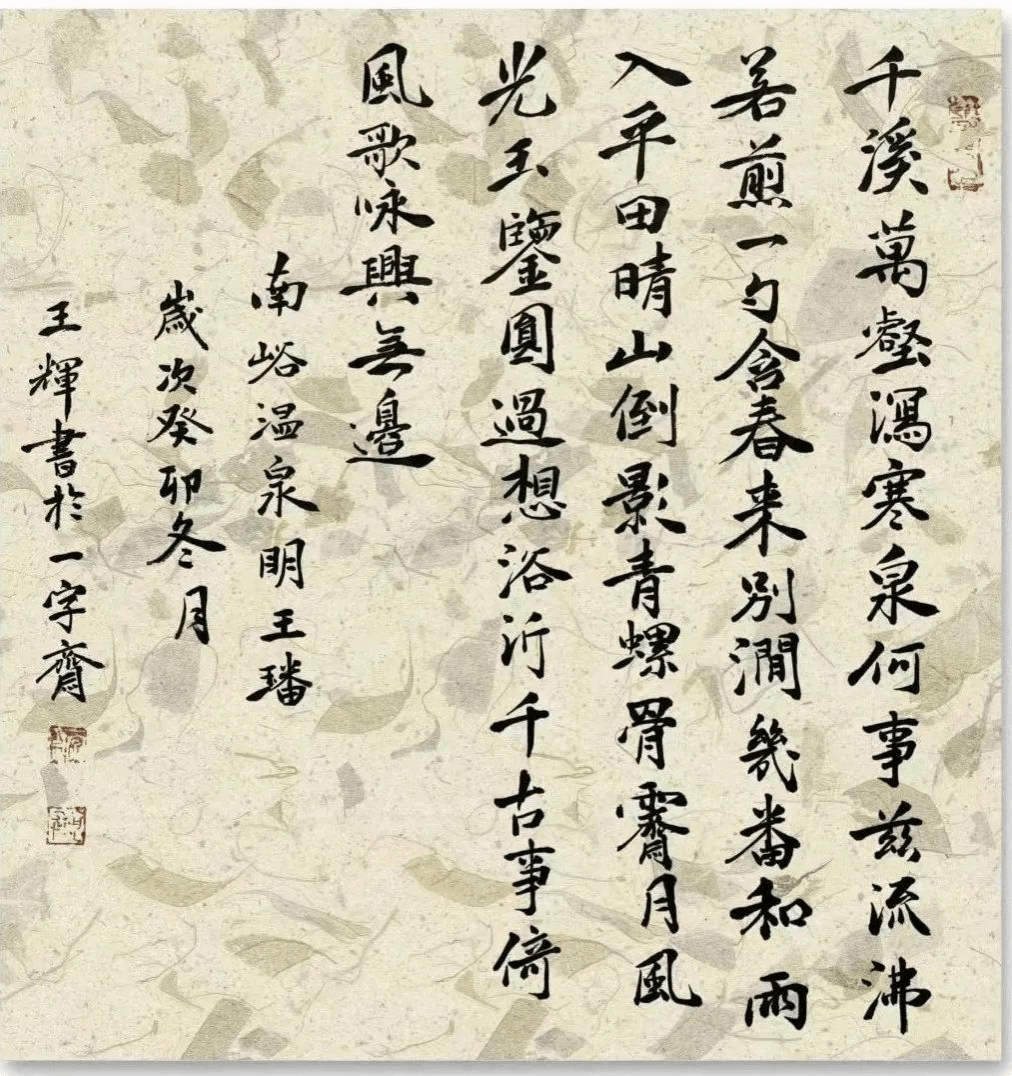 千溪萬壑瀉寒泉何事茲流沸
若煎一勺含春来別澗幾番和雨
入平田晴山倒影青螺骨霽月風
光玉鑒圓過想浴沂千古事倚
風歌咏興無邊
南峪温泉明王璠
歲次癸卯冬月
王輝書於一字齋